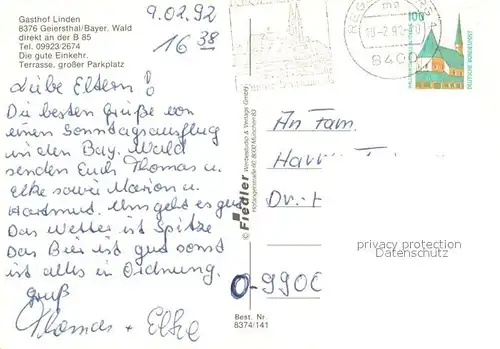 Gasthof Linden
8376 Geiersthal/Bayer. Wald
direkt an der B 85
Tel. 09923/2674
Die gute Einkehr.
Terrasse, großer Parkplatz
9.02.92
16 38
Liebe Eltern!
Die besten Grüße von
einen Sonntagsausflug
in den Bay. Wald
senden Euch Thomas u.
Elke sowie Marion u.
Hartmut. Uns geht es gut
Das Wetter ist Spitze
Das Bier ist gut sonst
ist alles in Ordnung.
Gruß
Thomas + Elke
© Fiedler Werbestudio & Verlags GmbH
Best. Nr.
8374/141
REG
8400
100
DEUTSCHE BUNDESPOST
An Fam.
Har
Dr.
O-990
privacy protection
Datenschutz